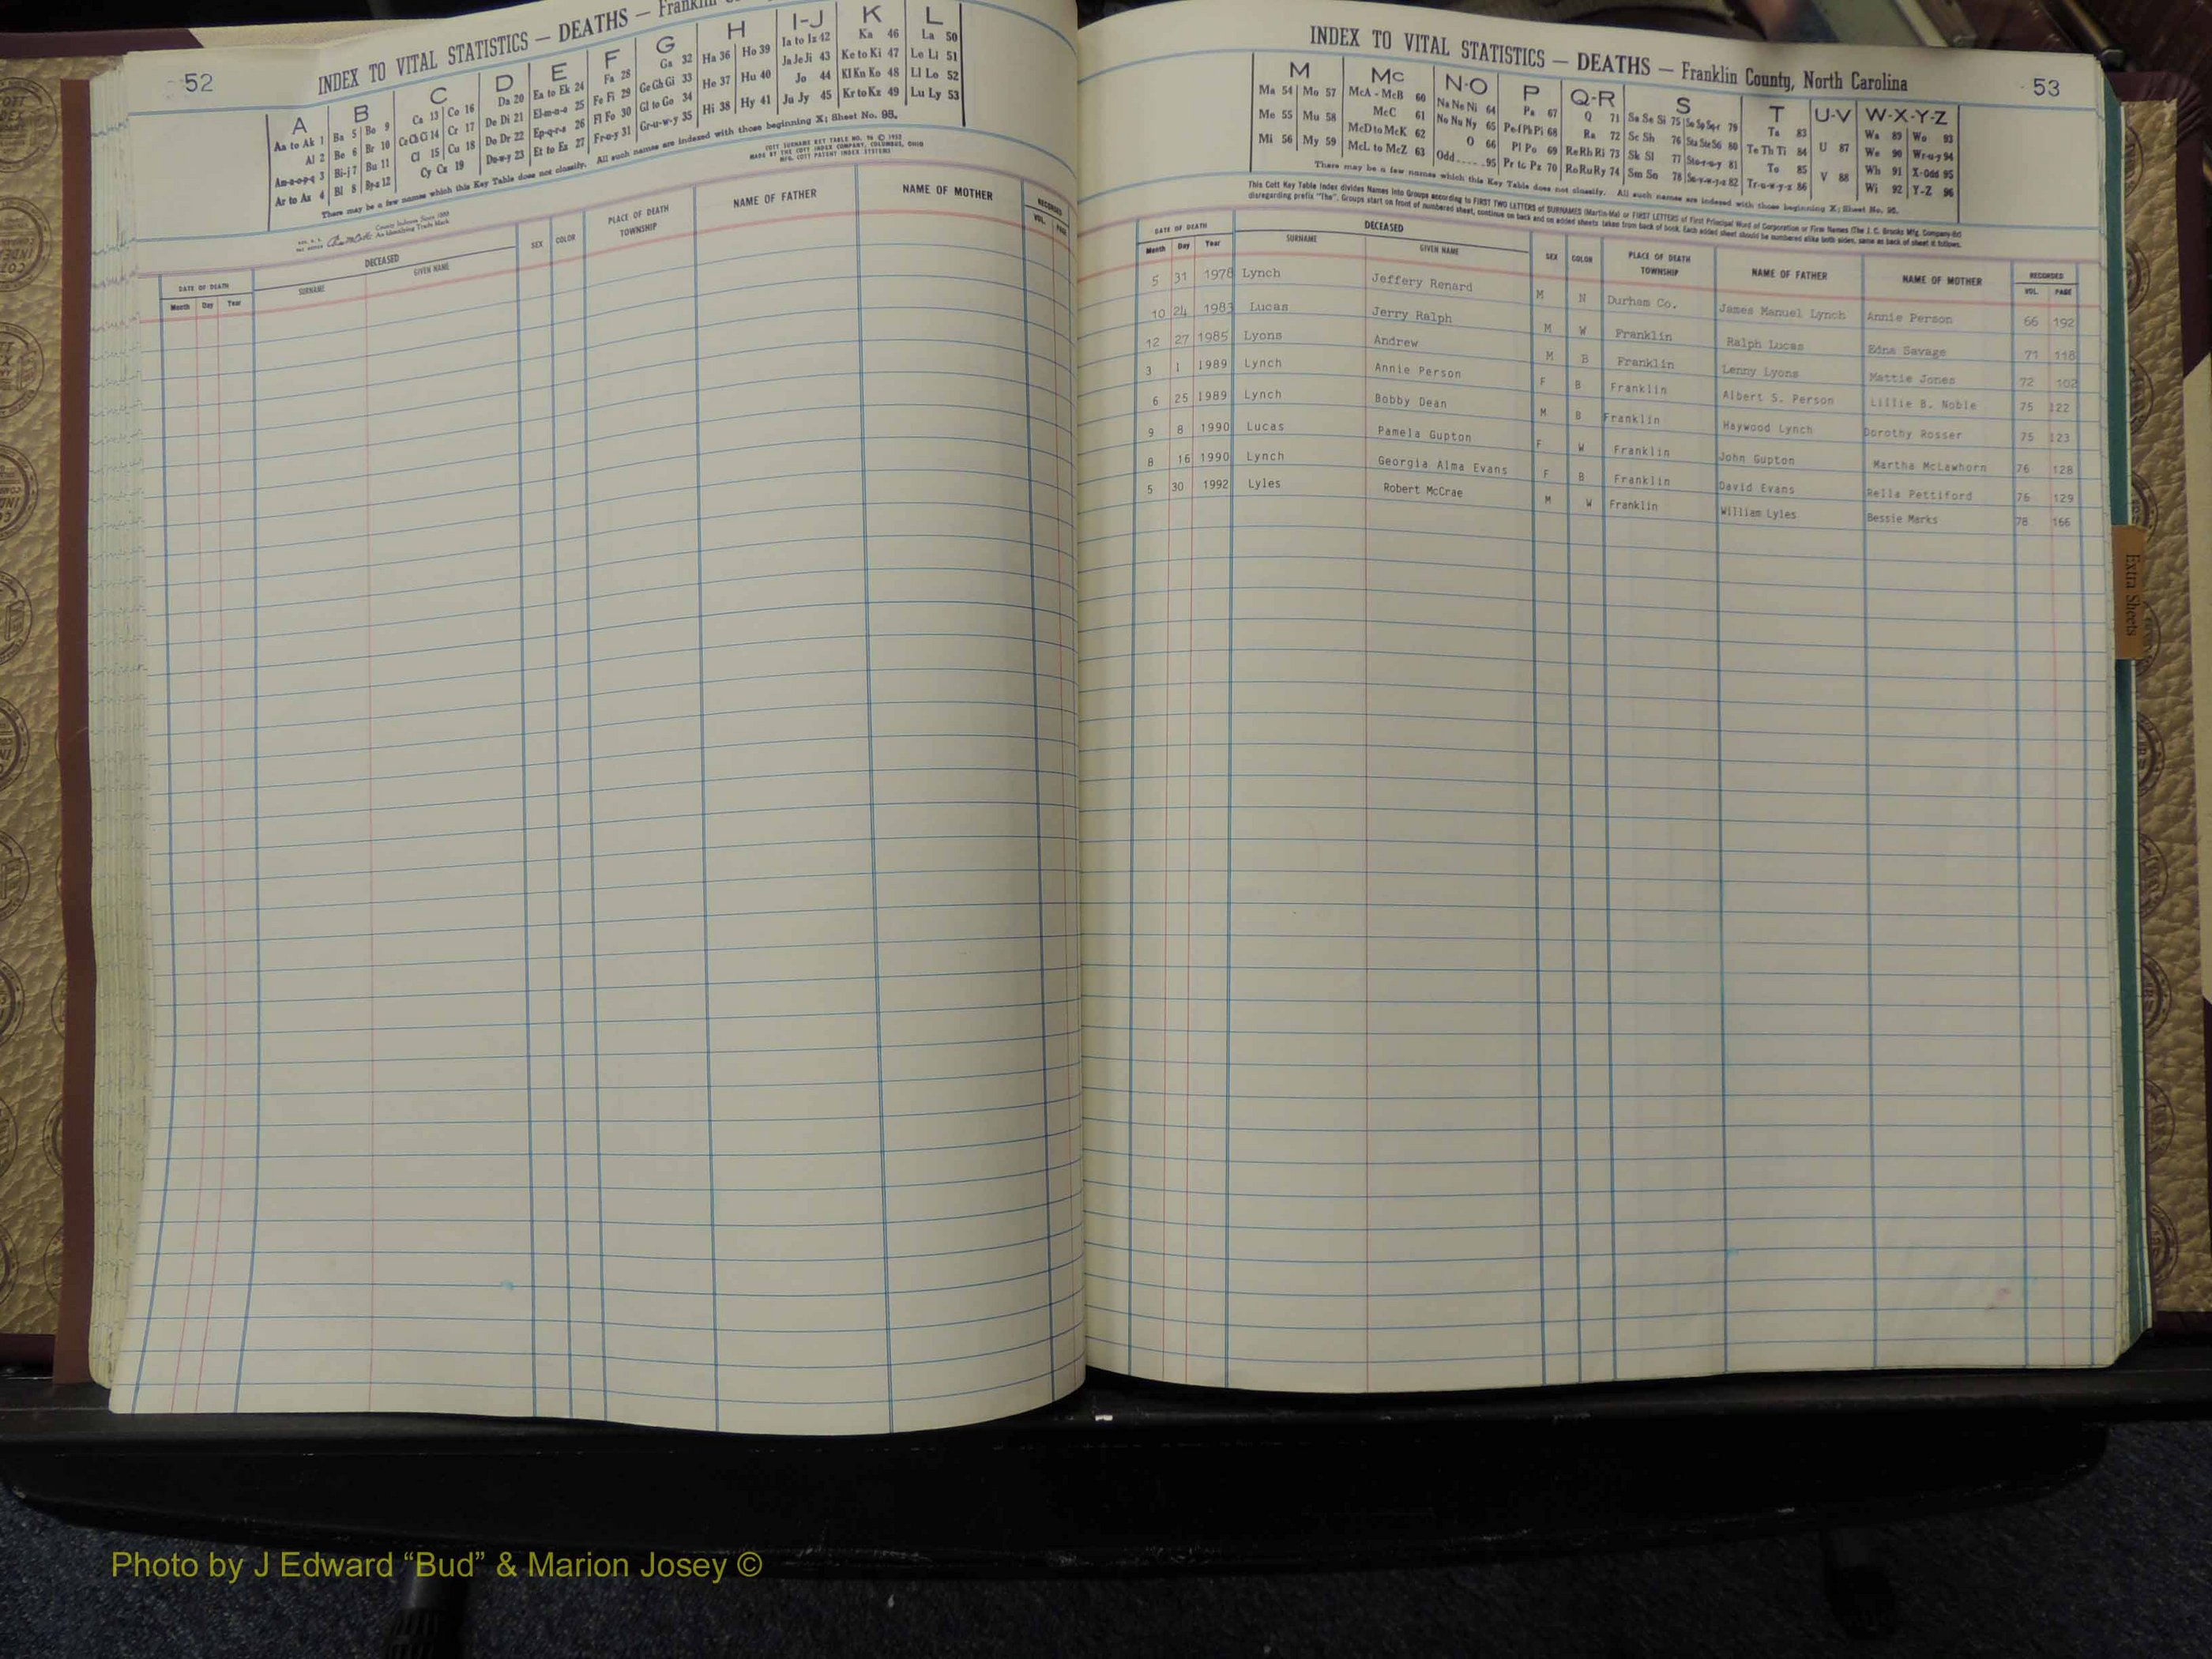 52
INDEX TO VITAL STATISTICS — DEATHS — Franklin
A B C D E F G H I-J K L
Aa to Ak 1 Ba 5 Bo 9 Ca 13 Co 16 Da 20 Ea to Ek 24 Fa 28 Ga 32 Ha 36 Ho 39 Ia to Iz 42 Ka 46 La 50
Al 2 Be 6 Br 10 Ce Ch Ci 14 Cr 17 De Di 21 El-m-n-o 25 Fe Fi 29 Ge Gh Gi 33 He 37 Hu 40 Ja Je Ji 43 Ke to Ki 47 Le Li 51
Am-n-o-p-q 3 Bi-j 7 Bu 11 Cl 15 Cu 18 Do Dr 22 Ep-q-r-s 26 Fl Fo 30 Gl to Go 34 Hi 38 Hy 41 Jo 44 Kl Kn Ko 48 Ll Lo 52
Ar to Az 4 Bl 8 By-z 12 Cy Cz 19 Du-w-y 23 Et to Ez 27 Fr-u-y 31 Gr-u-w-y 35 Ju Jy 45 Kr to Kz 49 Lu Ly 53
There may be a few names which this Key Table does not classify. All such names are indexed with those beginning X; Sheet No. 95.
COTT SURNAME KEY TABLE NO. 96 © 1952
MADE BY THE COTT INDEX COMPANY, COLUMBUS, OHIO
MFG. COTT PATENT INDEX SYSTEMS
County Indexes Since 1888
An Identifying Trade Mark
DATE OF DEATH DECEASED SEX COLOR PLACE OF DEATH TOWNSHIP NAME OF FATHER NAME OF MOTHER RECORDED
Month Day Year SURNAME GIVEN NAME VOL. PAGE
INDEX TO VITAL STATISTICS — DEATHS — Franklin County, North Carolina
53
M Mc N-O P Q-R S T U-V W-X-Y-Z
Ma 54 Mo 57 McA - McB 60 Na Ne Ni 64 Pa 67 Q 71 Sa Se Si 75 So Sp Sq-r 79 Ta 83 U 87 Wa 89 Wo 93
Me 55 Mu 58 McC 61 No Nu Ny 65 Pe-f Ph Pi 68 Ra 72 Sc Sh 76 Sta Ste Sti 80 Te Th Ti 84 V 88 We 90 Wr-u-y 94
Mi 56 My 59 McD to McK 62 O 66 Pl Po 69 Re Rh Ri 73 Sk Sl 77 Sto-r-u-y 81 To 85 Wh 91 X-Odd 95
McL to McZ 63 Odd 95 Pr to Pz 70 Ro Ru Ry 74 Sm Sn 78 Su-v-w-y-z 82 Tr-u-w-y-z 86 Wi 92 Y-Z 96
There may be a few names which this Key Table does not classify. All such names are indexed with those beginning X; Sheet No. 95.
This Cott Key Table Index divides Names into Groups according to FIRST TWO LETTERS of SURNAMES (Martin-Ma) or FIRST LETTERS of First Principal Word of Corporation or Firm Names (The J. C. Brooks Mfg. Company-Br)
disregarding prefix "The". Groups start on front of numbered sheet, continue on back and on added sheets taken from back of book. Each added sheet should be numbered alike both sides, same as back of sheet it follows.
DATE OF DEATH DECEASED SEX COLOR PLACE OF DEATH TOWNSHIP NAME OF FATHER NAME OF MOTHER RECORDED
Month Day Year SURNAME GIVEN NAME VOL. PAGE
5 31 1978 Lynch Jeffery Renard M N Durham Co. James Manuel Lynch Annie Person 66 192
10 24 1983 Lucas Jerry Ralph M W Franklin Ralph Lucas Edna Savage 71 118
12 27 1985 Lyons Andrew M B Franklin Lenny Lyons Mattie Jones 72 102
3 1 1989 Lynch Annie Person F B Franklin Albert S. Person Lillie B. Noble 75 122
6 25 1989 Lynch Bobby Dean M B Franklin Haywood Lynch Dorothy Rosser 75 123
9 8 1990 Lucas Pamela Gupton F W Franklin John Gupton Martha McLawhorn 76 128
8 16 1990 Lynch Georgia Alma Evans F B Franklin David Evans Rella Pettiford 76 129
5 30 1992 Lyles Robert McCrae M W Franklin William Lyles Bessie Marks 78 166
Extra Sheets
Photo by J Edward “Bud” & Marion Josey ©